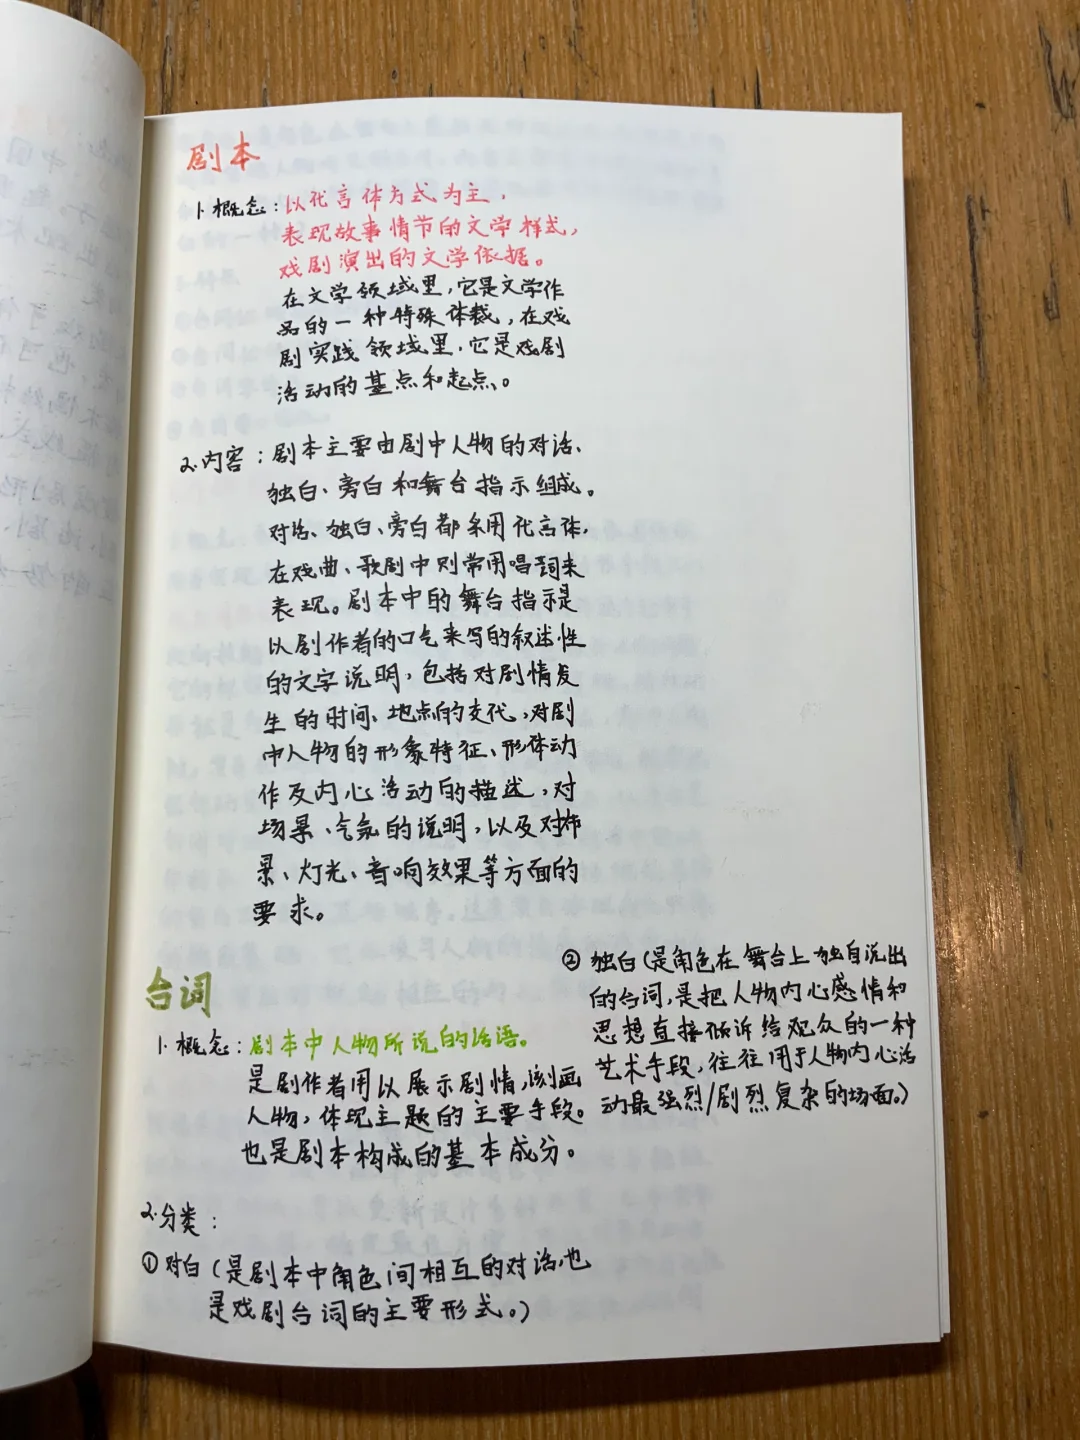 剧本
1. 概念：以代言体方式为主，
表现故事情节的文学样式，
戏剧演出的文学依据。
在文学领域里，它是文学作
品的一种特殊体裁，在戏
剧实践领域里，它是戏剧
活动的基点和起点。
2. 内容：剧本主要由剧中人物的对话、
独白、旁白和舞台指示组成。
对话、独白、旁白都采用代言体，
在戏曲、歌剧中则常用唱词来
表现。剧本中的舞台指示是
以剧作者的口气来写的叙述性
的文字说明，包括对剧情发
生的时间、地点的交代，对剧
中人物的形象特征、形体动
作及内心活动的描述，对
场景、气氛的说明，以及对布
景、灯光、音响效果等方面的
要求。
台词
1. 概念：剧本中人物所说的话语。
是剧作者用以展示剧情，刻画
人物，体现主题的主要手段。
也是剧本构成的基本成分。
2. 分类：
① 对白（是剧本中角色间相互的对话，也
是戏剧台词的主要形式。）
② 独白（是角色在舞台上独自说出
的台词，是把人物内心感情和
思想直接倾诉给观众的一种
艺术手段，往往用于人物内心活
动最强烈/剧烈复杂的场面。）